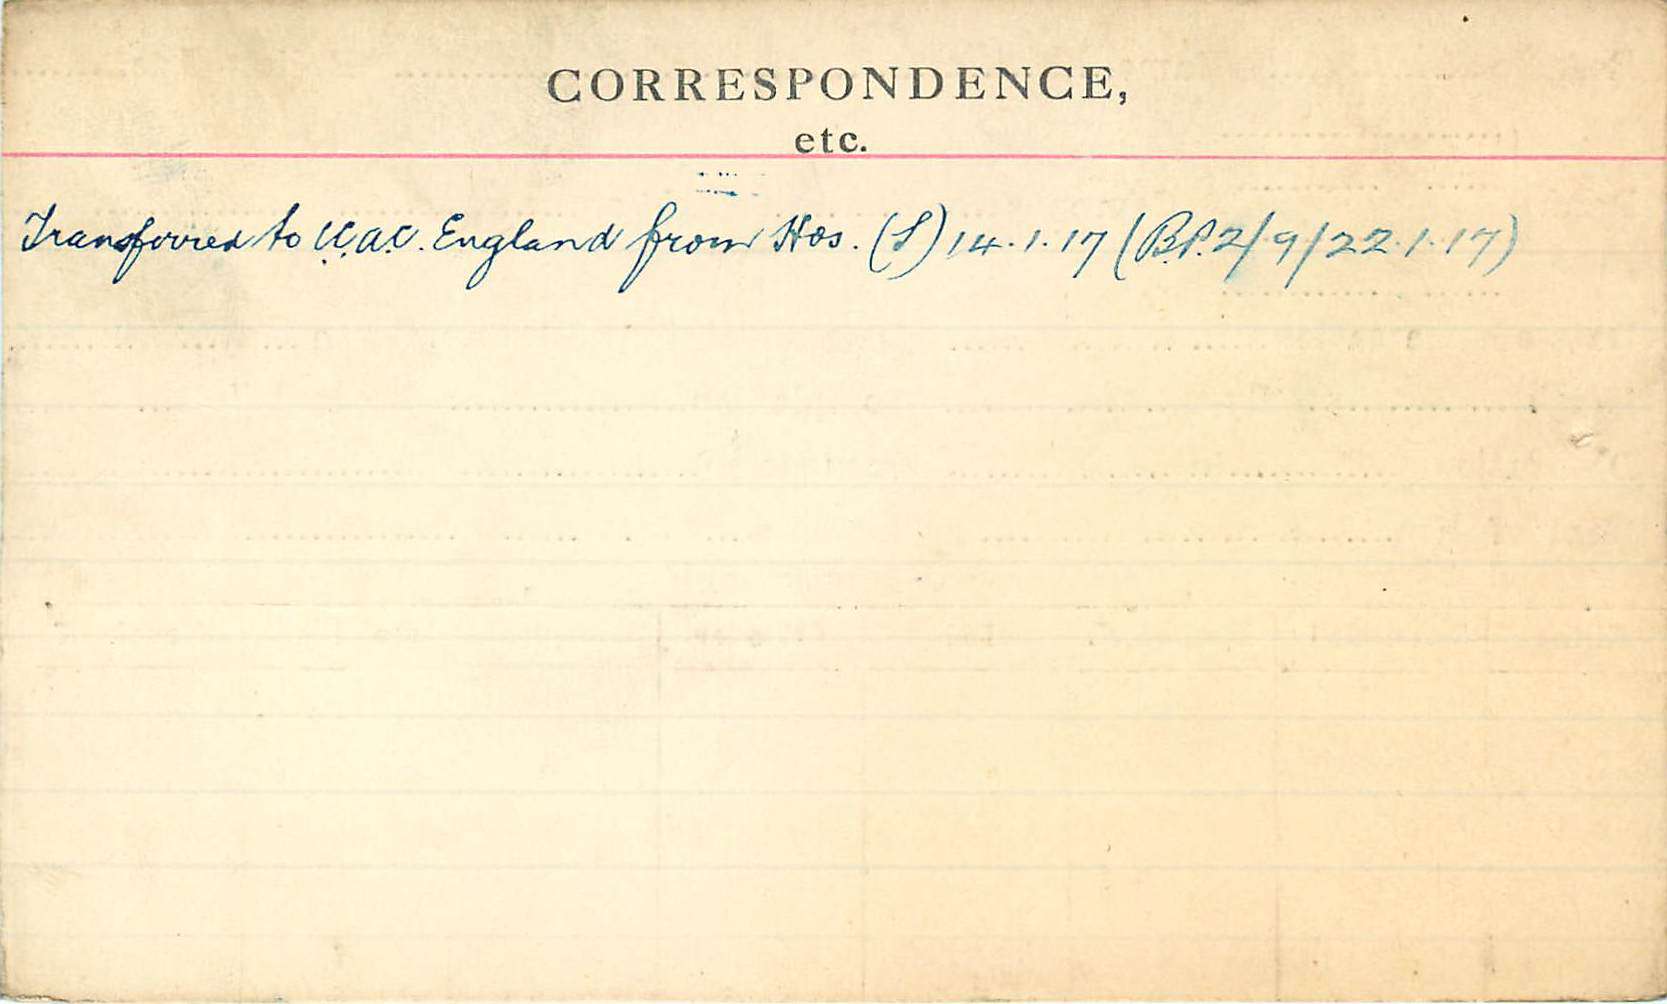 CORRESPONDENCE,
etc.
Transferred to C.A.C. England from Hos. (S) 14.1.17 (B.P.2/9/22.1.17)